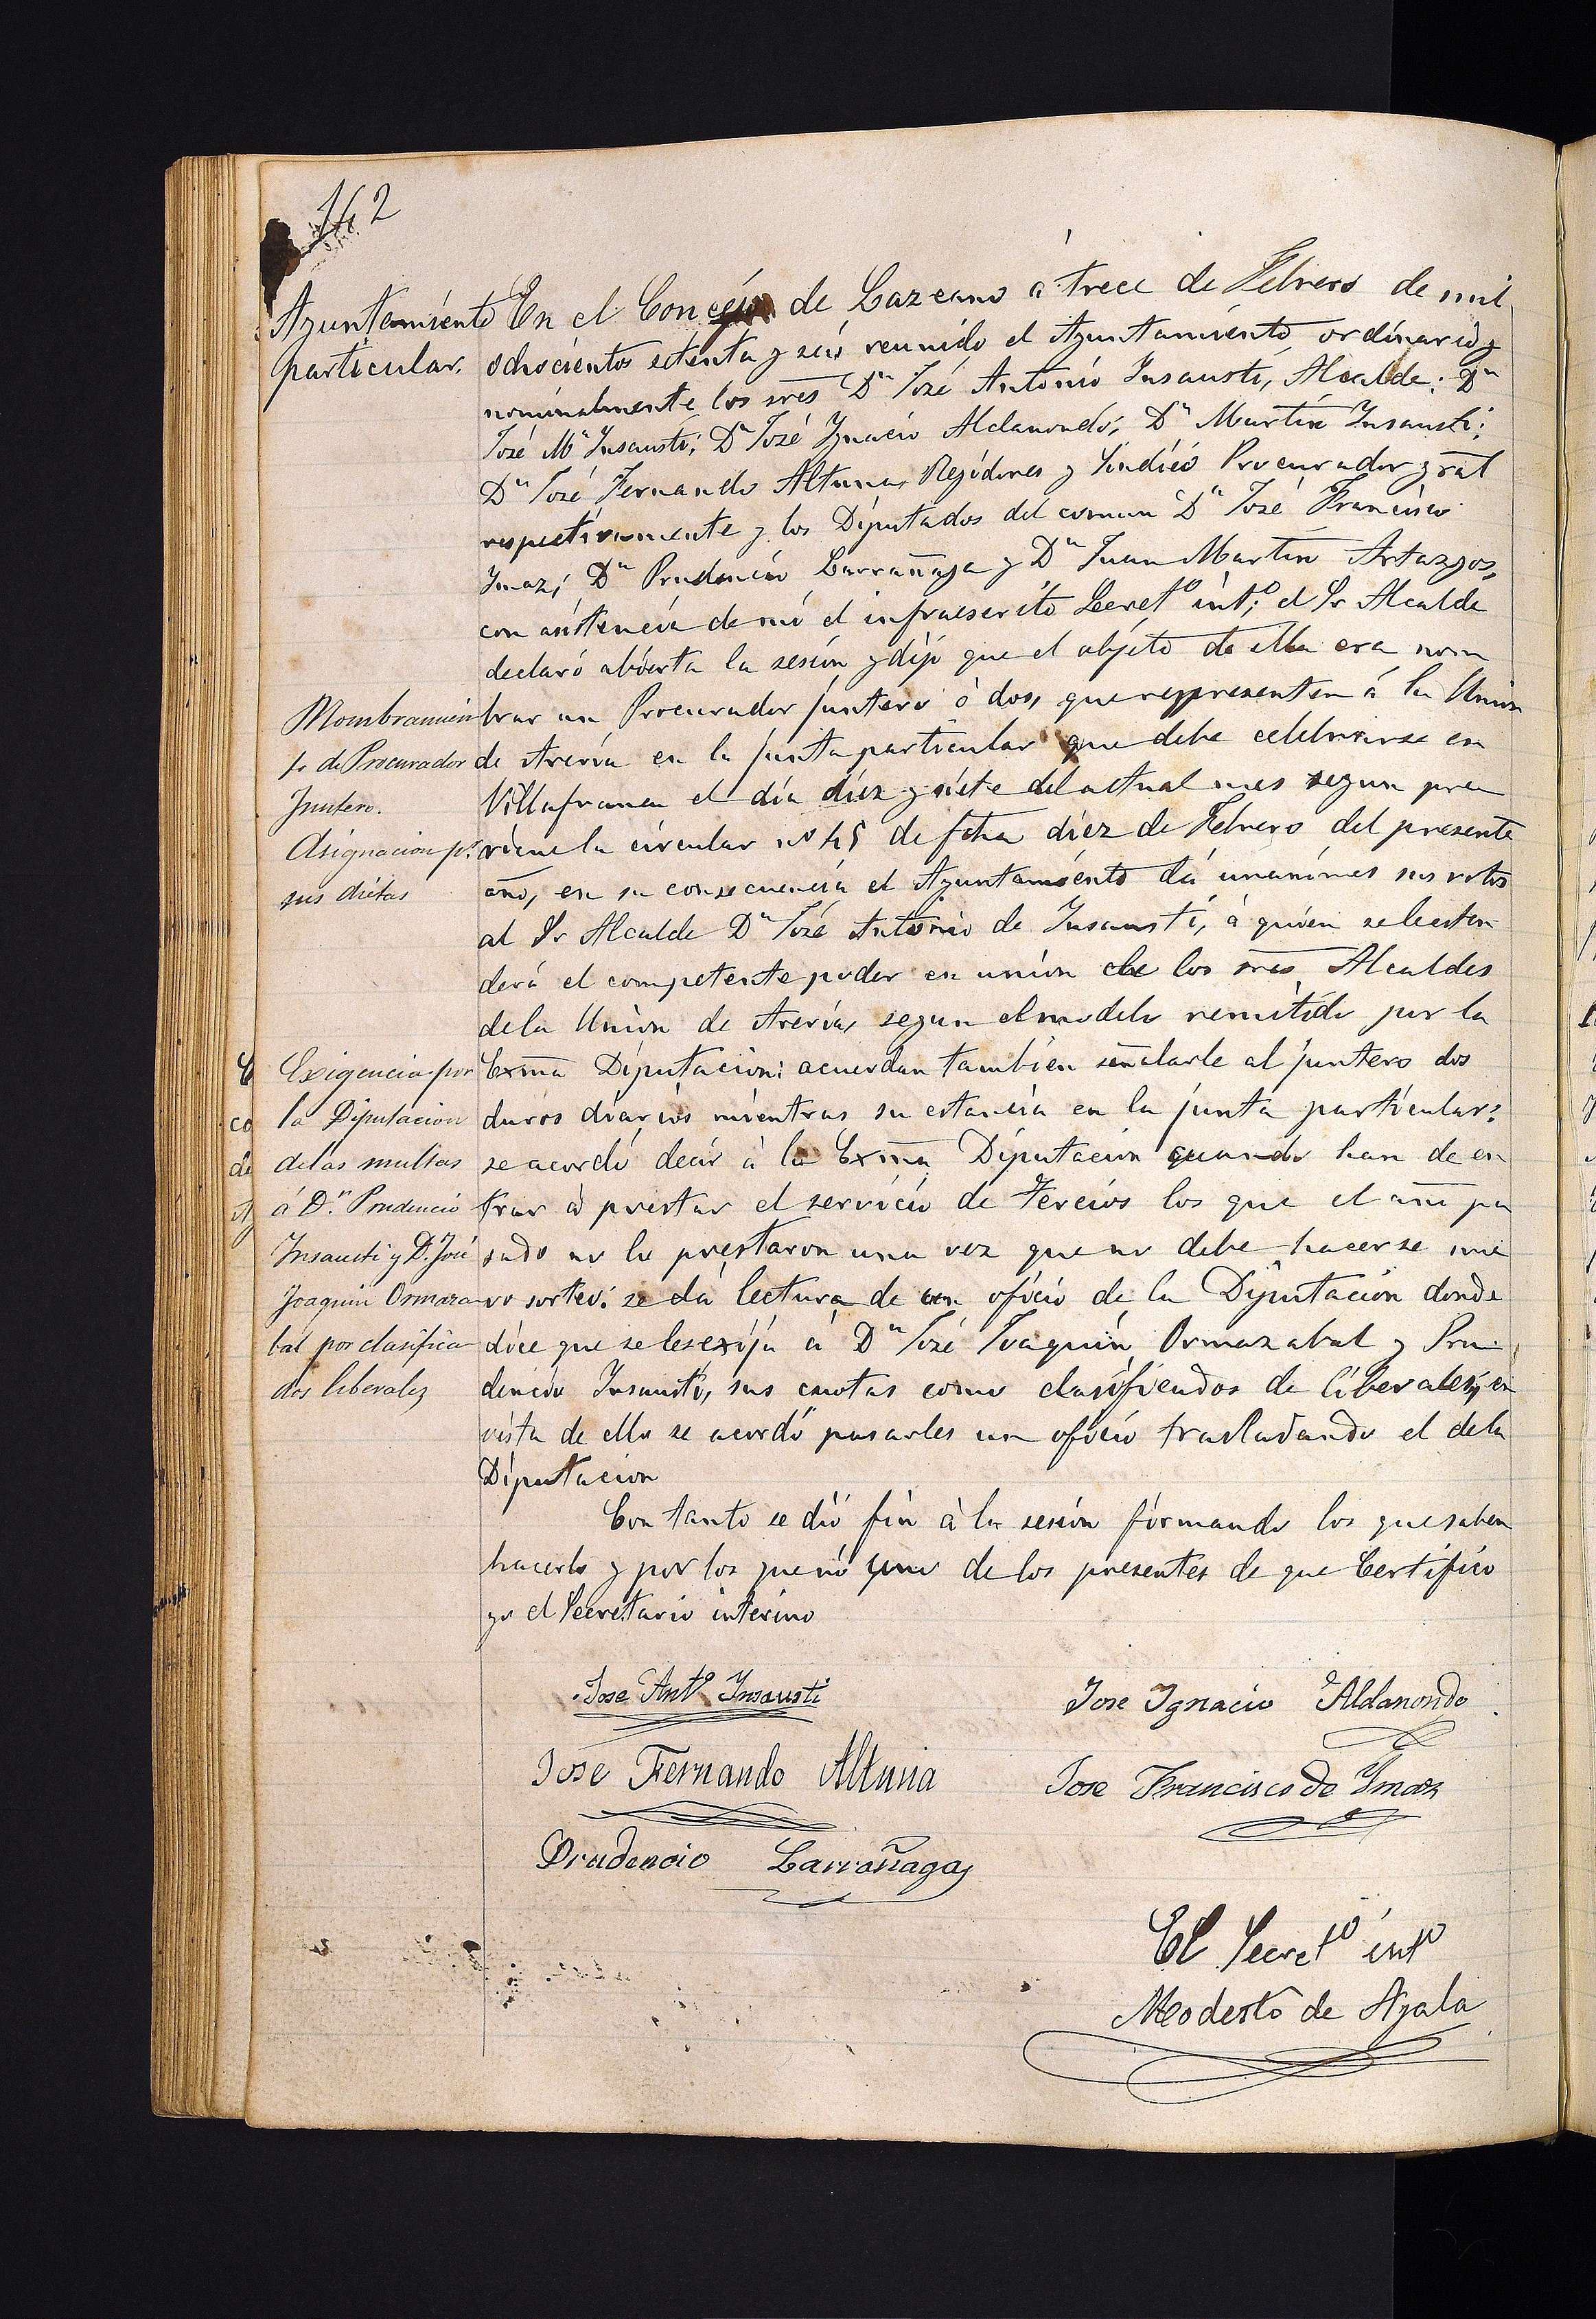 162
Ayuntamiento
particular.
En el Concejo de Lazcano á trece de Febrero de mil
ochocientos setenta y seis reunido el Ayuntamiento ordinario y
nominalmente los sres Dn José Antonio Insausti, Alcalde; Dn
José Ma Insausti; Dn José Ygnacio Aldanondo; Dn Martin Insausti;
Dn José Fernando Altuna, Regidores y Sindico Procurador gral
respectivamente y los Diputados del comun Dn José Francisco
Ymaz; Dn Prudencio Larrañaga y Dn Juan Martin Artazgoz,
con asistencia de mi el infraescrito Secreto into; el Sr Alcalde
declaró abierta la sesion y dijo que el objeto de ella era nom
brar un Procurador juntero ó dos, que reppresenten á la Union
de Areria en la junta particular que debe celebrarse en
Villafranca el dia diez y siete del actual mes segun pre
viene la circular no 45 de fcha diez de Febrero del presente
año, en su consecuencia el Ayuntamiento dá unanimes sus votos
al Sr Alcalde Dn José Antonio de Insausti, á quien se le esten
derá el competente poder en union de los sres Alcaldes
de la Union de Areria, segun el modelo remitido por la
Exma Diputacion: acuerdan tambien señalarle al juntero dos
duros diarios mientras su estancia en la junta particular:
se acordó decir á la Exma Diputacion quando han de en
trar á prestar el servicio de Tercios los que el año pa
sado no lo prestaron una vez que no debe hacerse nue
vo sorteo: se dá lectura de un oficio de la Diputacion donde
dice que se les exija á Dn José Joaquin Ormazabal y Pru
dencio Insausti, sus cuotas como clasificados de liberales, en
vista de ello se acordó pasarles un oficio trasladando el de la
Diputacion
Con tanto se dió fin á la sesion firmando los que saben
hacerlo y por los que nó uno de los presentes de que Certifico
yo el Secretario interino
Nombramien
to de Procurador
Juntero.
Asignacion pa
sus dietas
Exigencia por
la Diputacion
de las multas
á Dn. Prudencio
Insausti y D. José
Joaquin Ormaza
bal por clasifica
dos liberales
Jose Anto Insausti
Jose Ygnacio Aldanondo
Jose Fernando Altuna
Jose Francisco de Ymaz
Prudencio Larrañaga
El Secreto into
Modesto de Ayala